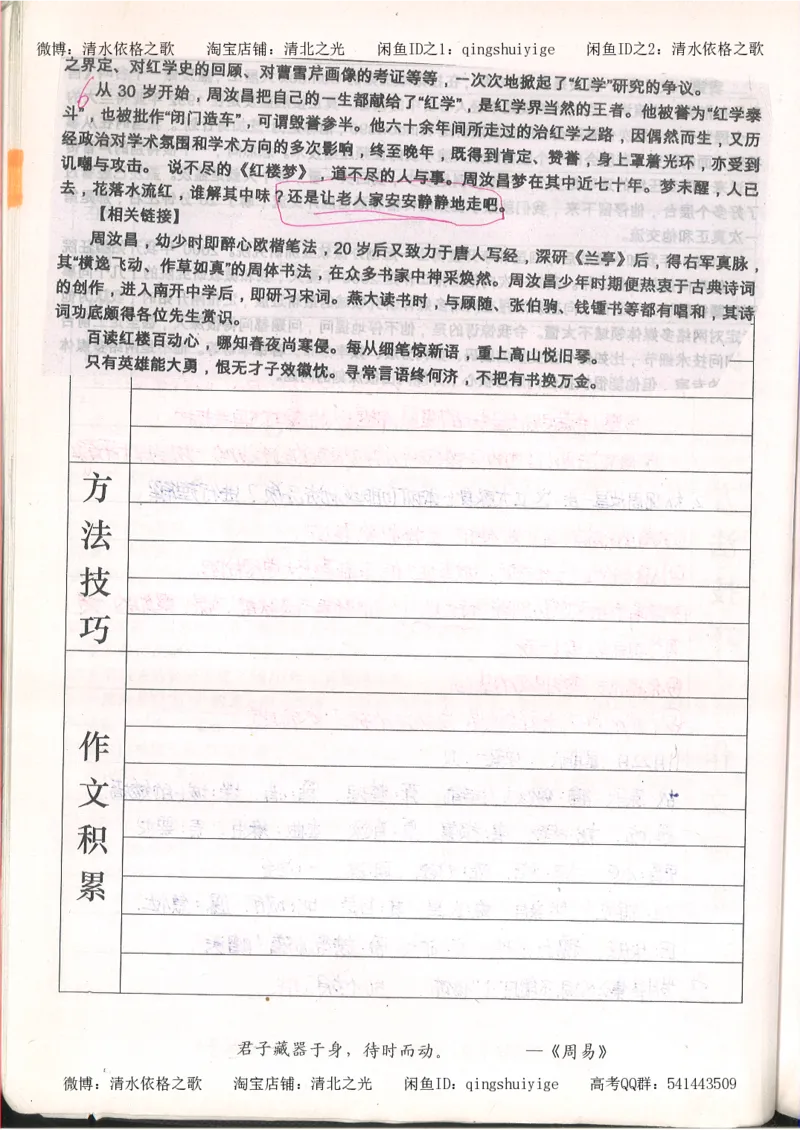 微博：清水依格之歌 淘宝店铺：清北之光 闲鱼ID之1：qingshuiyige 闲鱼ID之2：清水依格之歌
之界定、对红学史的回顾、对曹雪芹画像的考证等等，一次次地掀起了“红学”研究的争议。
6
从 30 岁开始，周汝昌把自己的一生都献给了“红学”，是红学界当然的王者。他被誉为“红学泰
斗”，也被批作“闭门造车”，可谓毁誉参半。他六十余年间所走过的治红学之路，因偶然而生，又历
经政治对学术氛围和学术方向的多次影响，终至晚年，既得到肯定、赞誉，身上罩着光环，亦受到
讥嘲与攻击。 说不尽的《红楼梦》，道不尽的人与事。周汝昌梦在其中近七十年。梦未醒，人已
去，花落水流红，谁解其中味？还是让老人家安安静静地走吧。
【相关链接】
周汝昌，幼少时即醉心欧楷笔法，20 岁后又致力于唐人写经，深研《兰亭》后，得右军真脉，
其“横逸飞动、作草如真”的周体书法，在众多书家中神采焕然。周汝昌少年时期便热衷于古典诗词
的创作，进入南开中学后，即研习宋词。燕大读书时，与顾随、张伯驹、钱锺书等都有唱和，其诗
词功底颇得各位先生赏识。
百读红楼百动心，哪知春夜尚寒侵。每从细笔惊新语，重上高山悦旧琴。
只有英雄能大勇，恨无才子效徽忱。寻常言语终何济，不把有书换万金。
方法技巧
作文积累
君子藏器于身，待时而动。 —《周易》
微博：清水依格之歌 淘宝店铺：清北之光 闲鱼ID：qingshuiyige 高考QQ群：541443509